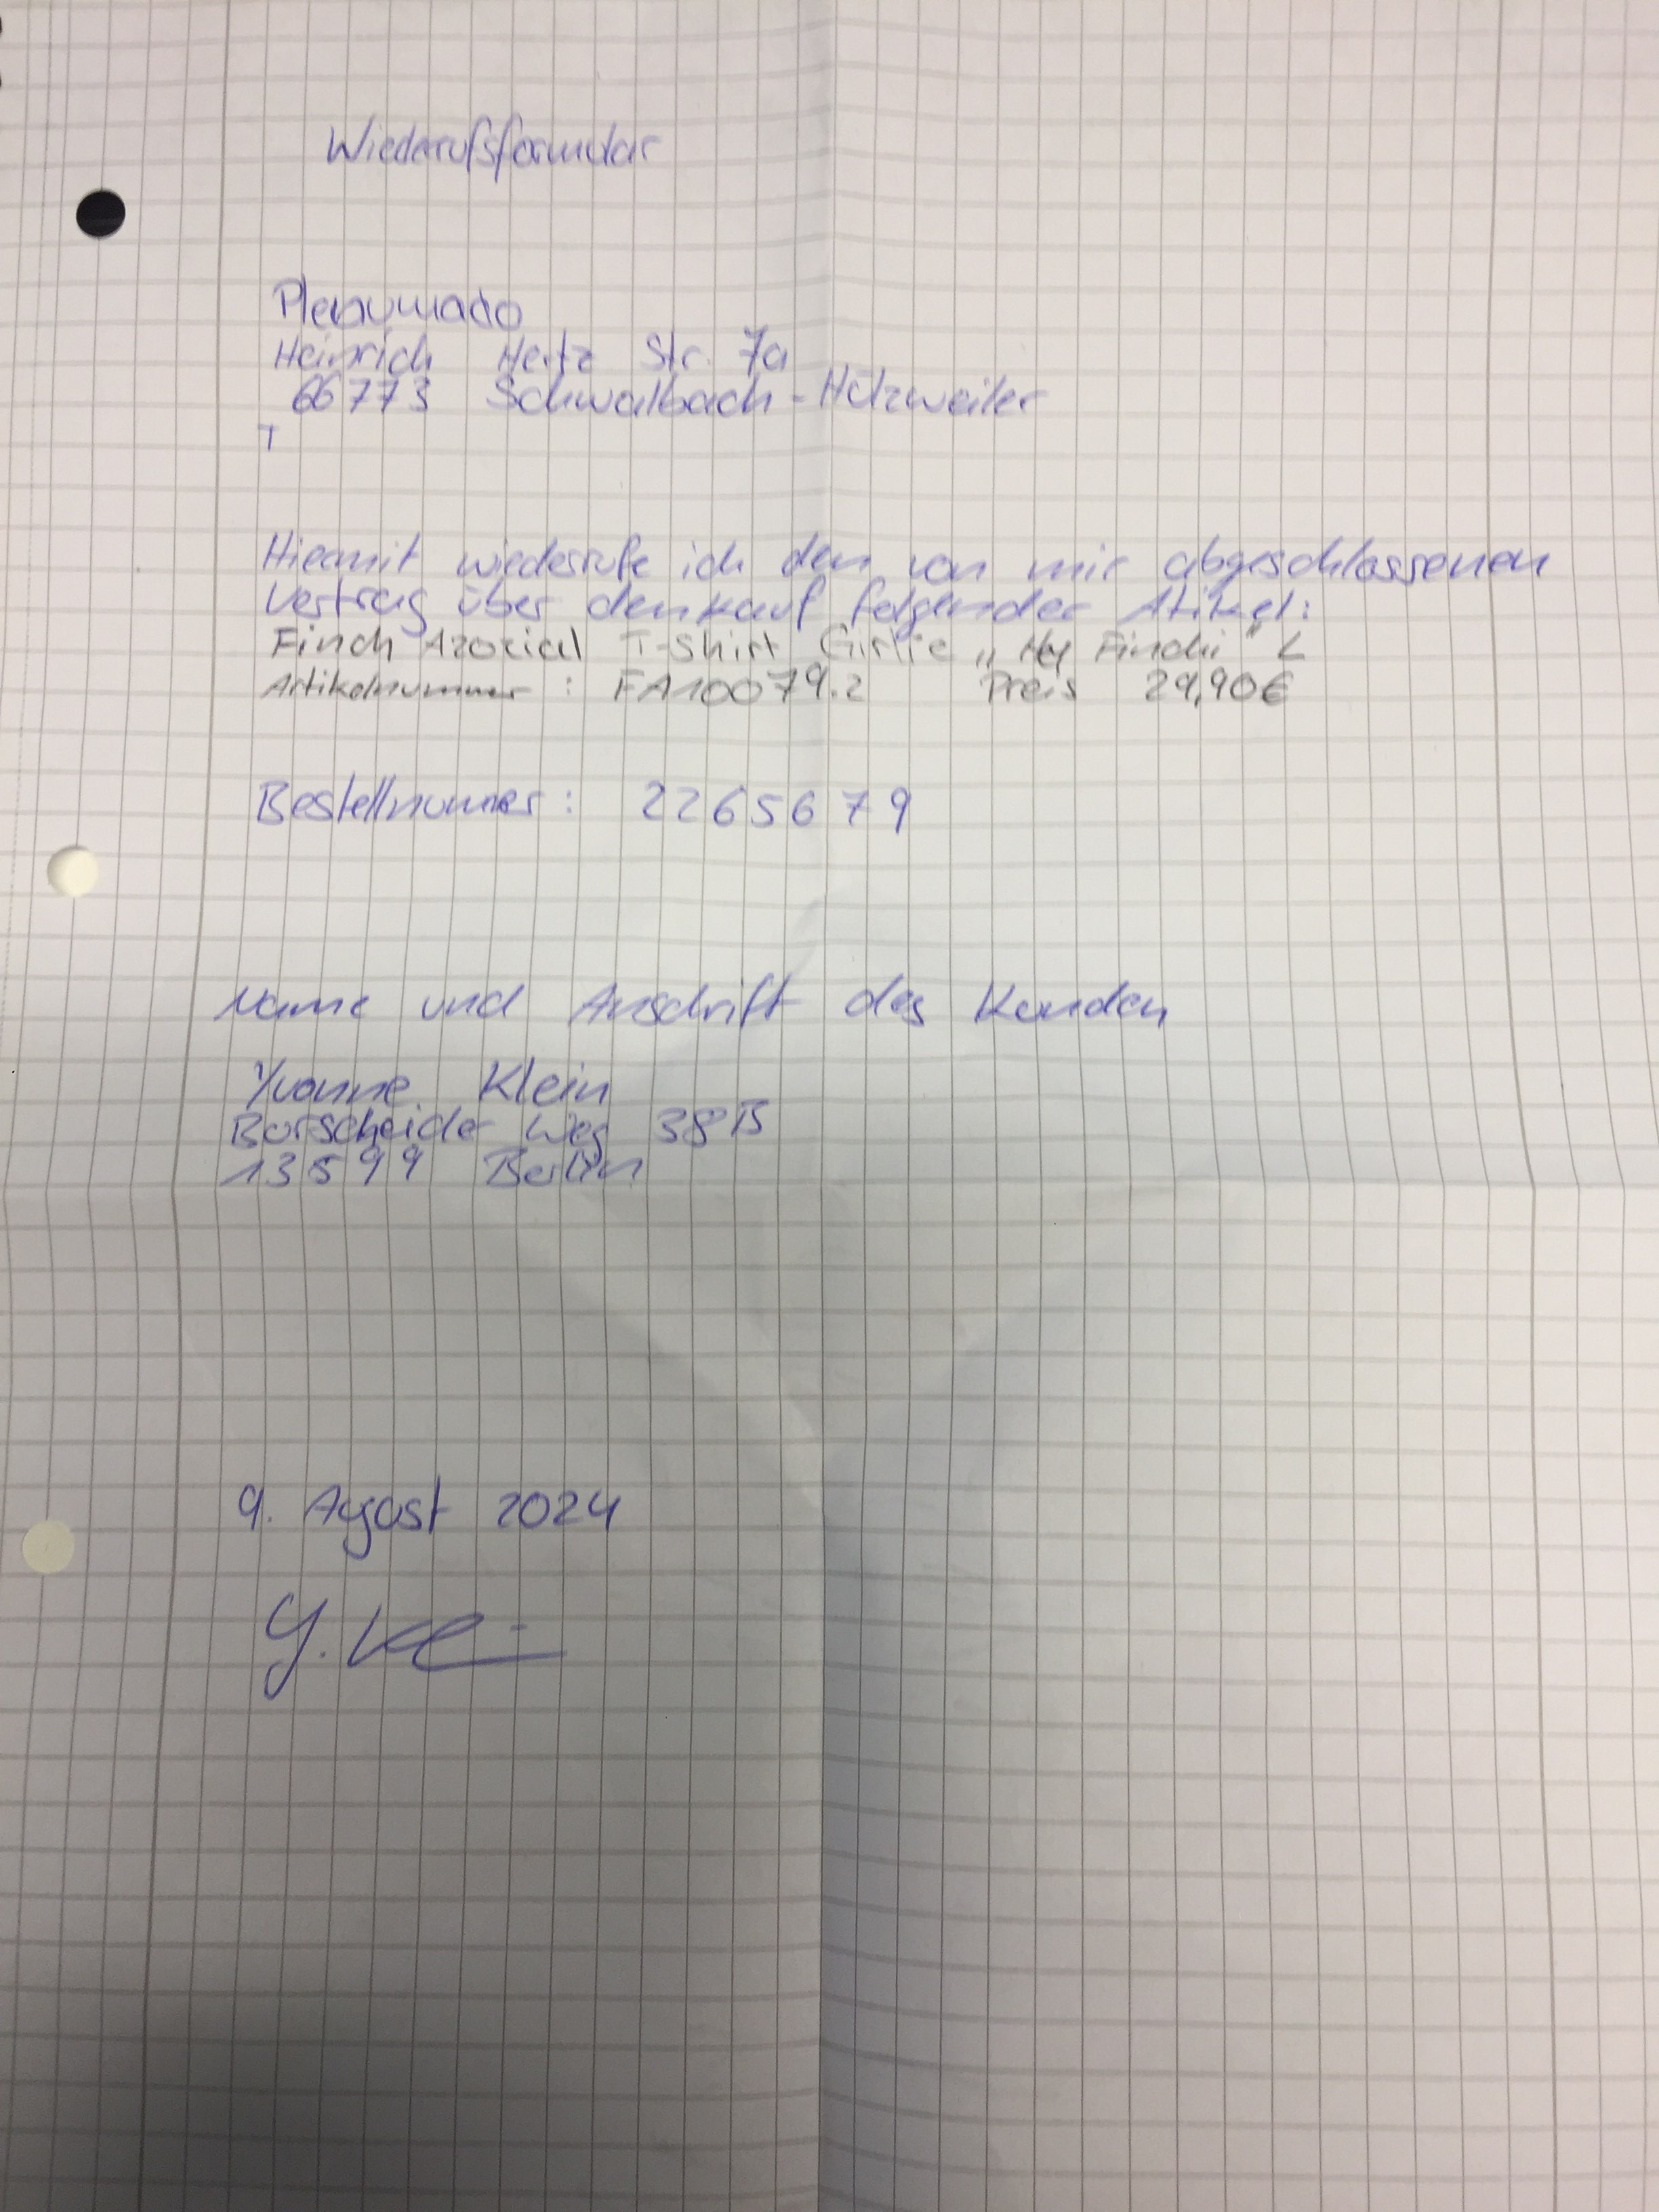 Wiederufsformular
Plenumado
Heinrich Hertz Str. 7a
66773 Schwalbach-Hülzweiler
T
Hiermit wiederrufe ich den von mir abgeschlossenen
Vertrag über den Kauf folgender Atikel:
Finch Azozial T-Shirt Girlie „My Finchi" L
Artikelnummer: FA10079.2 Preis 29,90€
Bestellnummer: 2265679
Name und Anschrift des Kunden
Yvonne Klein
Borscheider Weg 38B
13599 Berlin
9. August 2024
Y. Klein